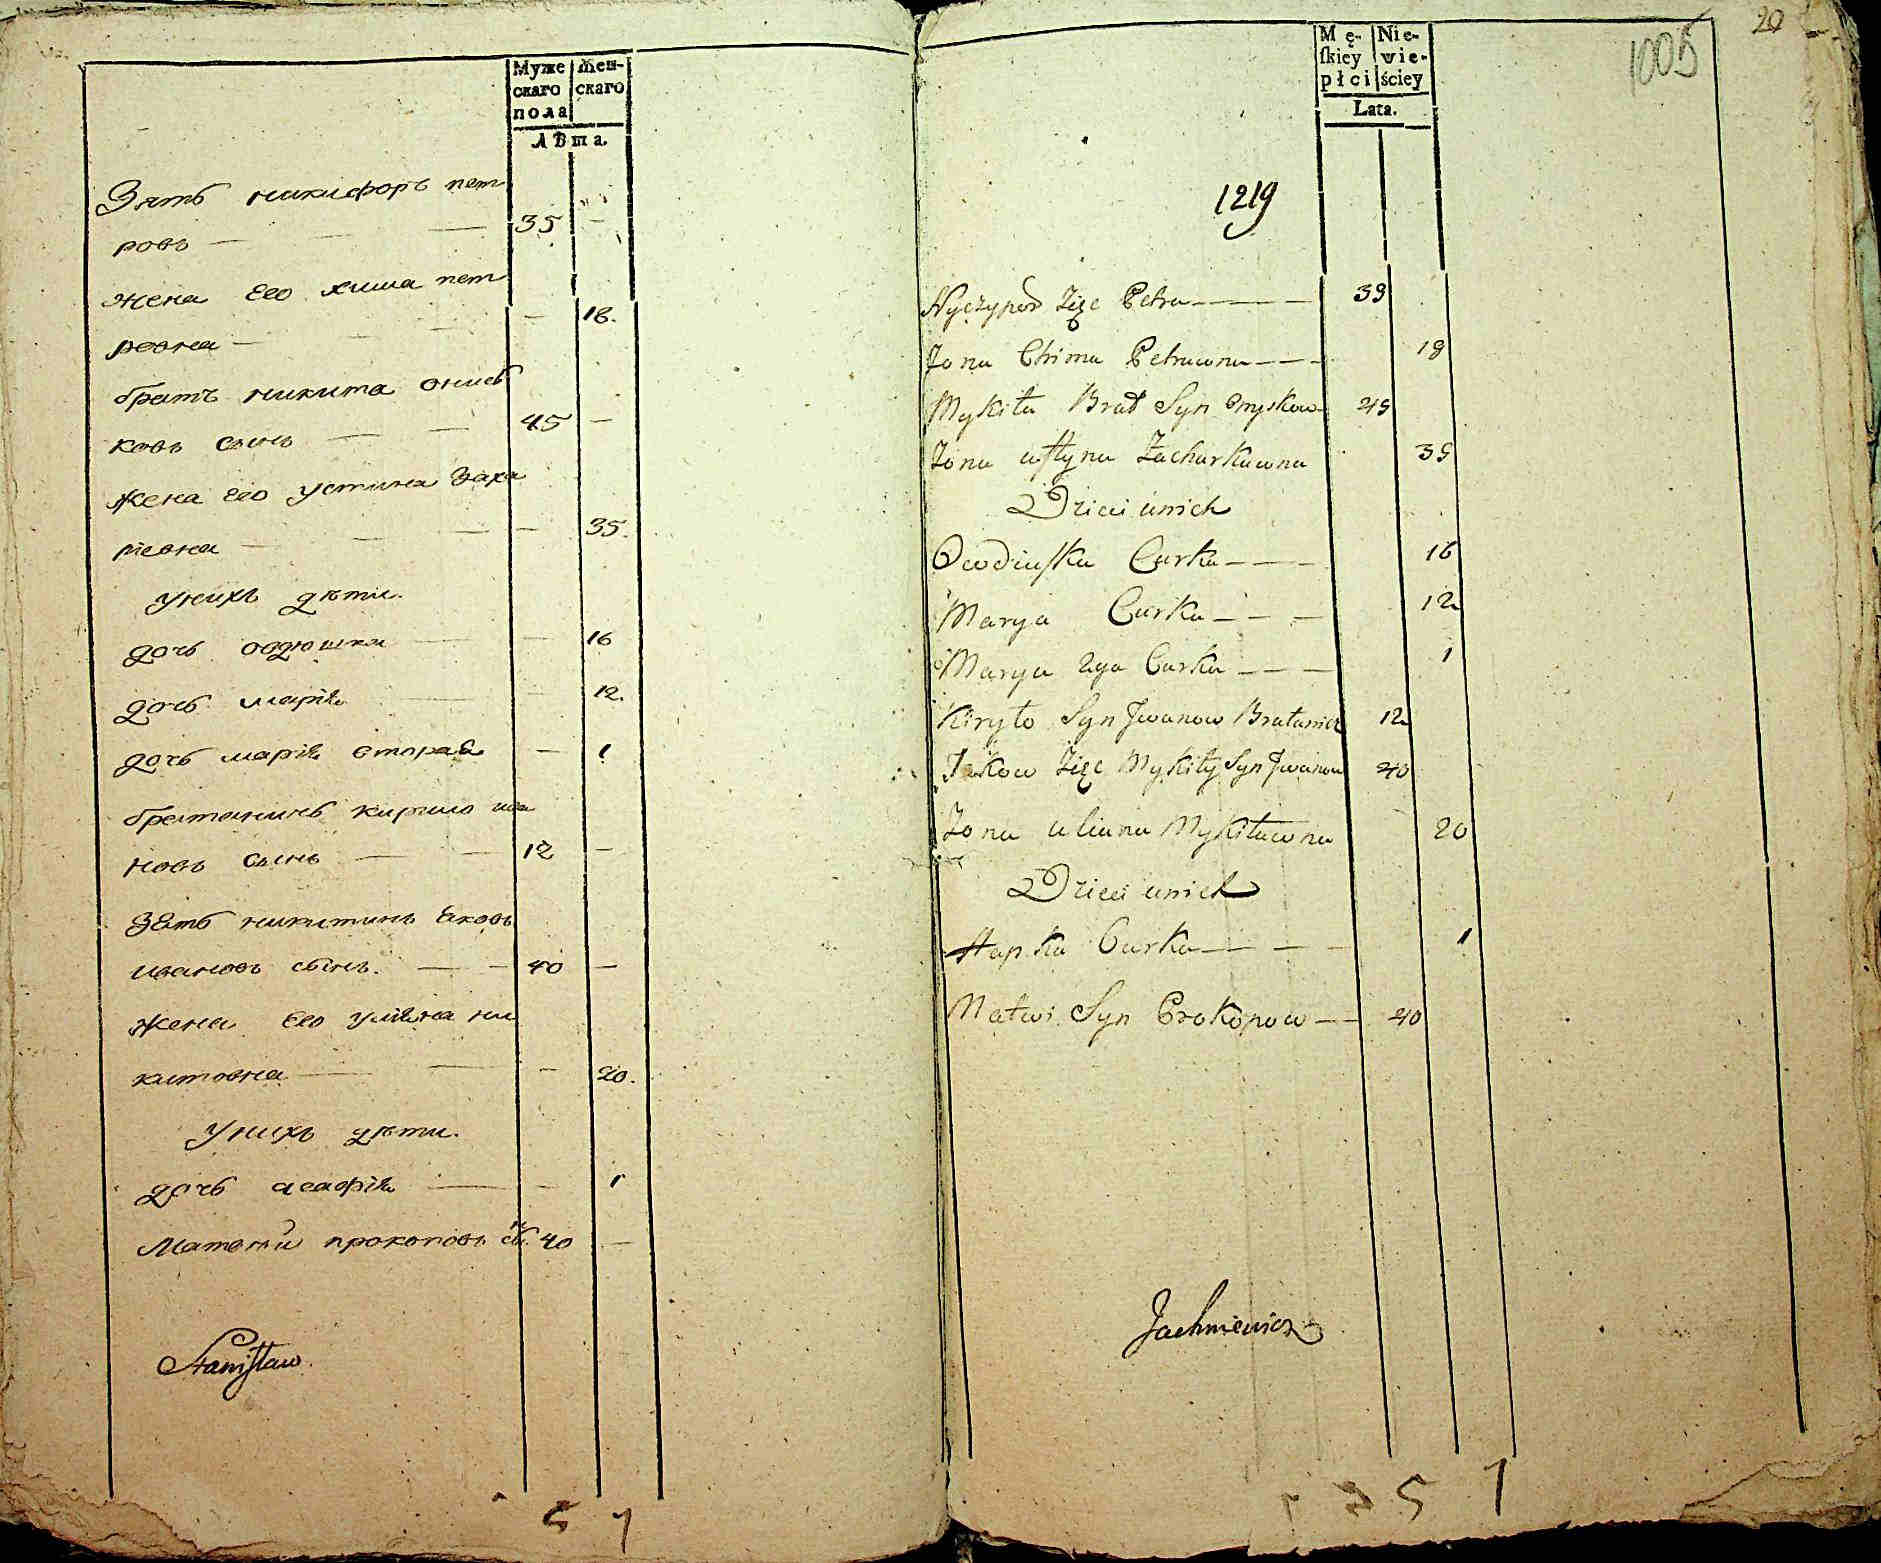 Муже Жен-
скаго скаго
пола
Лѣта.
Зять никифоръ пет
ровъ 35 —
жена его хима пет
ровна — 18.
братъ никита ониś
ковъ сынъ 45 —
жена его устина заха
ревна — 35.
унихъ дѣти.
дочь овдюшка — 16
дочь марія — 12.
дочь марія вторая — 1
братаничъ кирило ива
новъ сынъ 12 —
Зять никитинъ яковъ
ивановъ сынъ. 40 —
жена его уліяна ни
китовна — 20.
унихъ дѣти.
дочь агафія — 1
Матвѣй прокоповъ сы́н 40 —
Stanisław
20
1005
Mę- Nie-
skiey wie-
płci ściey
Lata.
1219
Nyczypor Zięc Petra 39
Zona Chima Petruwna 18
Mykita Brat Syn Onyskow 45
Zona ustyna Zacharkuwna 35
Dzieci unich
Owdiuszka Curka 16
Marya Curka 12
Marya 2ga Curka 1
Kiryło Syn Jwanow Bratanicz 12
Jakow Zięc Mykity Syn Jwanow 40
Zona uliana Mykituwna 20
Dzieci unich
Hapka Curka 1
Matwi Syn Prokopow 40
Jachniewicz
5 1
2 5 1